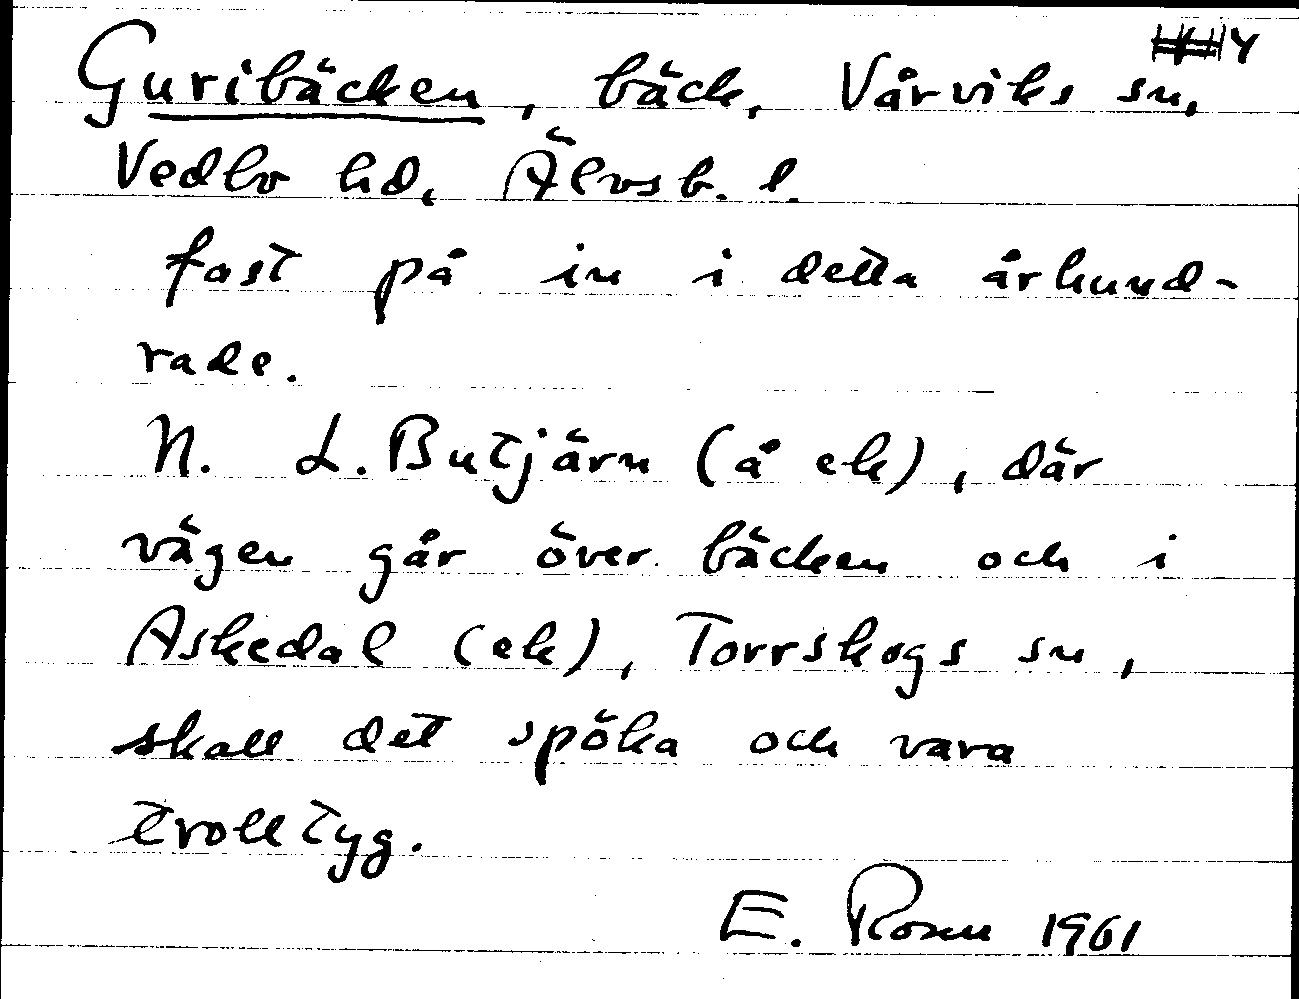 Guribäcken, bäck, Vårviks sn,
Vedbo hd, Älvsb. l.
fast på in i detta århund-
rade.
N. L. Butjärn (å ek), där
vägen går över bäcken och i
Askedal (ek), Torrskogs sn,
skall det spöka och vara
trolltyg.
E. 1961